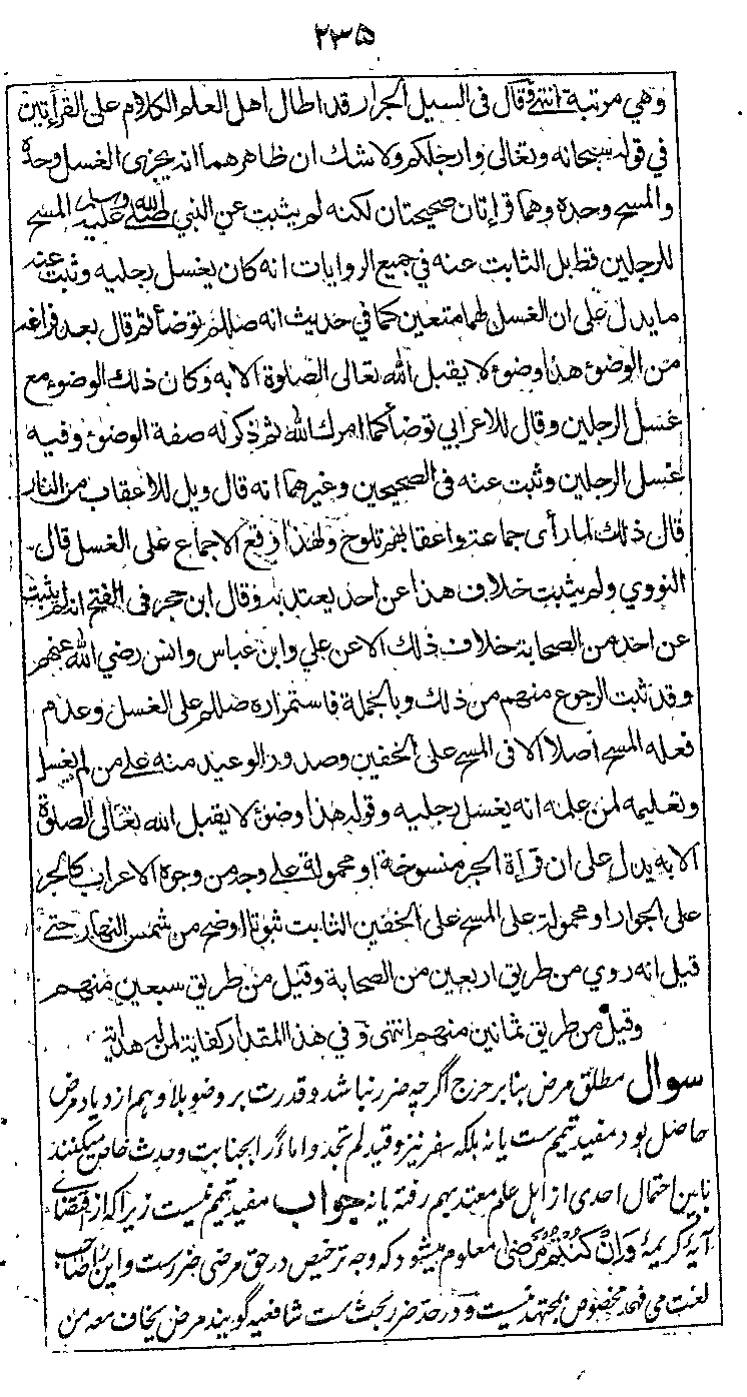 ٢٣٥
وهي مرتبة انتهى وقال في السيل الجرار قد اطال اهل العلم الكلام على القرأتين
في قوله سبحانه وتعالى وارجلكم ولا شك ان ظاهرهما انه يجزى الغسل وحده
والمسح وحده وهما قرأتان صحيحتان لكنه لم يثبت عن النبي صلى الله عليه وسلم المسح
للرجلين قط بل الثابت عنه في جميع الروايات انه كان يغسل رجليه وثبت عنه
ما يدل على ان الغسل لهما متعين كما في حديث انه صللم توضأ ثم قال بعد فراغه
من الوضوء هذا وضوء لا يقبل الله تعالى الصلوة الا به وكان ذلك الوضوء مع
غسل الرجلين وقال للاعرابي توضأ كما امرك الله ثم ذكر له صفة الوضوء وفيه
غسل الرجلين وثبت عنه في الصحيحين وغيرهما انه قال ويل للاعقاب من النار
قال ذلك لما رأى جماعة واعقابهم تلوح ولهذا وقع الاجماع على الغسل قال
النووي ولم يثبت خلاف هذا عن احد يعتد به وقال ابن حجر في الفتح انه لم يثبت
عن احد من الصحابة خلاف ذلك الا عن علي وابن عباس وانس رضي الله عنهم
وقد ثبت الرجوع منهم من ذلك وبالجملة فاستمراره صللم على الغسل وعدم
فعله المسح اصلا الا في المسح على الخفين وصدور الوعيد منه على من لم يغسل
وتعليمه لمن علمه انه يغسل رجليه وقوله هذا وضوء لا يقبل الله تعالى الصلوة
الا به يدل على ان قرأة الجر منسوخة او محمولة على وجه من وجوه الاعراب كالجر
على الجوار او محمولة على المسح على الخفين الثابت ثبوتا اوضح من شمس النهار حتى
قيل انه روي من طريق اربعين من الصحابة وقيل من طريق سبعين منهم
وقيل من طريق ثمانين منهم انتهى وفي هذا المقدار كفاية لمن له هداية
سوال مطلق مرض بنا بر حرج اگرچه ضرر نباشد و قدرت بر وضو بلا وهم ازدیاد مرض
حاصل بود مفید تیمم ست یا نه بلکه سفر نیز و قید لم تجدوا ماء را بجنابت و حدث خاص میکنند
باین احتمال احدی از اہل علم معتد بہم رفته یا نه جواب مفید تیمم نیست زیرا که از مقتضای
آیۀ کریمۀ وَاِنْ كُنْتُمْ مَرْضٰى معلوم میشود که وجه ترخیص در حق مرضی ضررست و این را صاحب
لغت می فهمد مخصوص بمجتهد نیست و در حد ضرر بحث ست شافعیه گویند مرض یخاف معه من